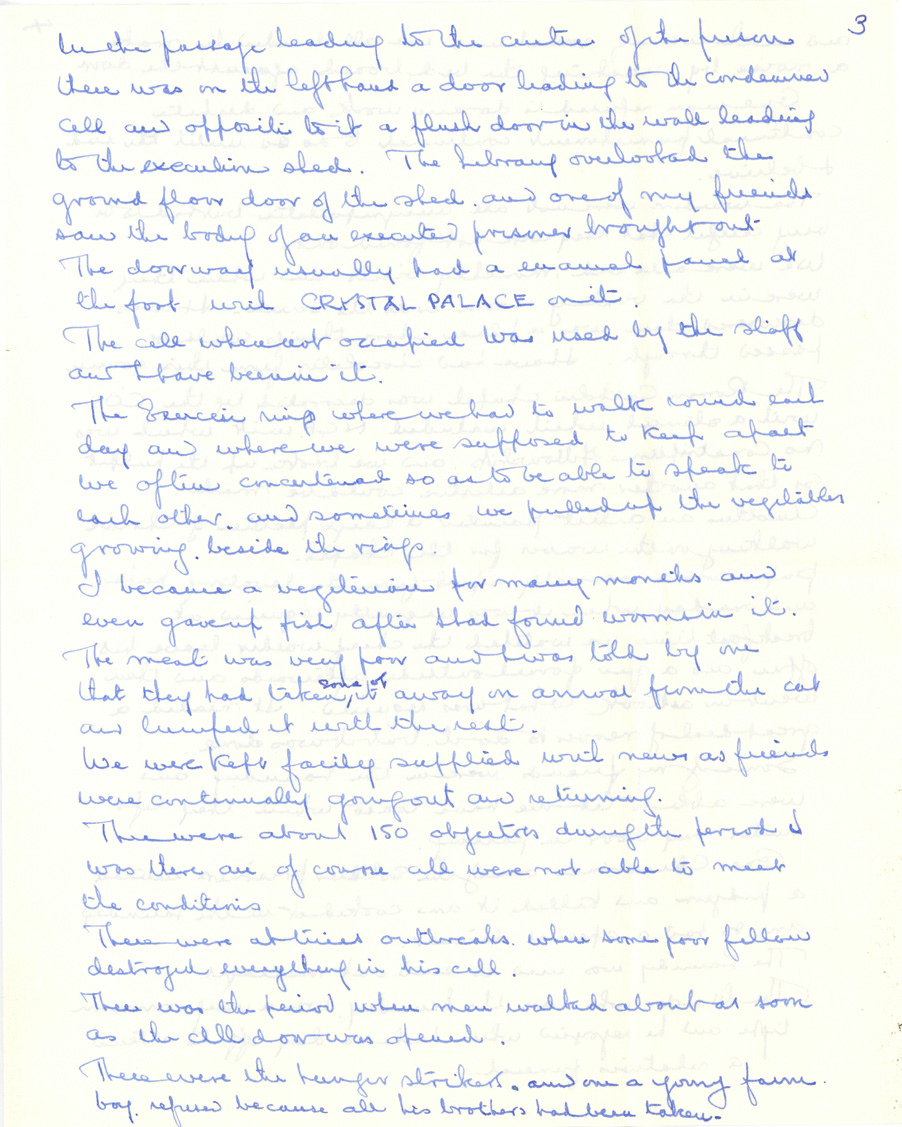 3
In the passage leading to the centre of the prison
there was on the lefthand a door leading to the condemned
cell and opposite to it a flush door in the wall leading
to the execution shed. The Library overlooked the
ground floor door of the shed. and one of my friends
saw the body of an executed prisoner brought out
The doorway usually had a enamel panel at
the foot with CRYSTAL PALACE on it.
The cell when not occupied was used by the staff
and I have been in it.
The Exercise rings where we had to walk round each
day and where we were supposed to keep apart
we often concertenaed so as to be able to speak to
each other. and sometimes we pulled up the vegetables
growing beside the rings.
I became a vegeterian for many months and
even gave up fish after I had found worms in it.
The meat was very poor and I was told by one
that they had taken some of it away on arrival from the cat
and lumped it with the rest.
We were kept facily supplied with news as friends
were continually going out and returning.
There were about 150 objectors during the period I
was there and of course all were not able to meet
the conditions
There were at times outbreaks. when some poor fellow
destroyed everything in his cell.
There was the period when men walked about as soon
as the cell door was opened.
There were the hunger strikers. and one a young farm
boy. refused because all his brothers had been taken.